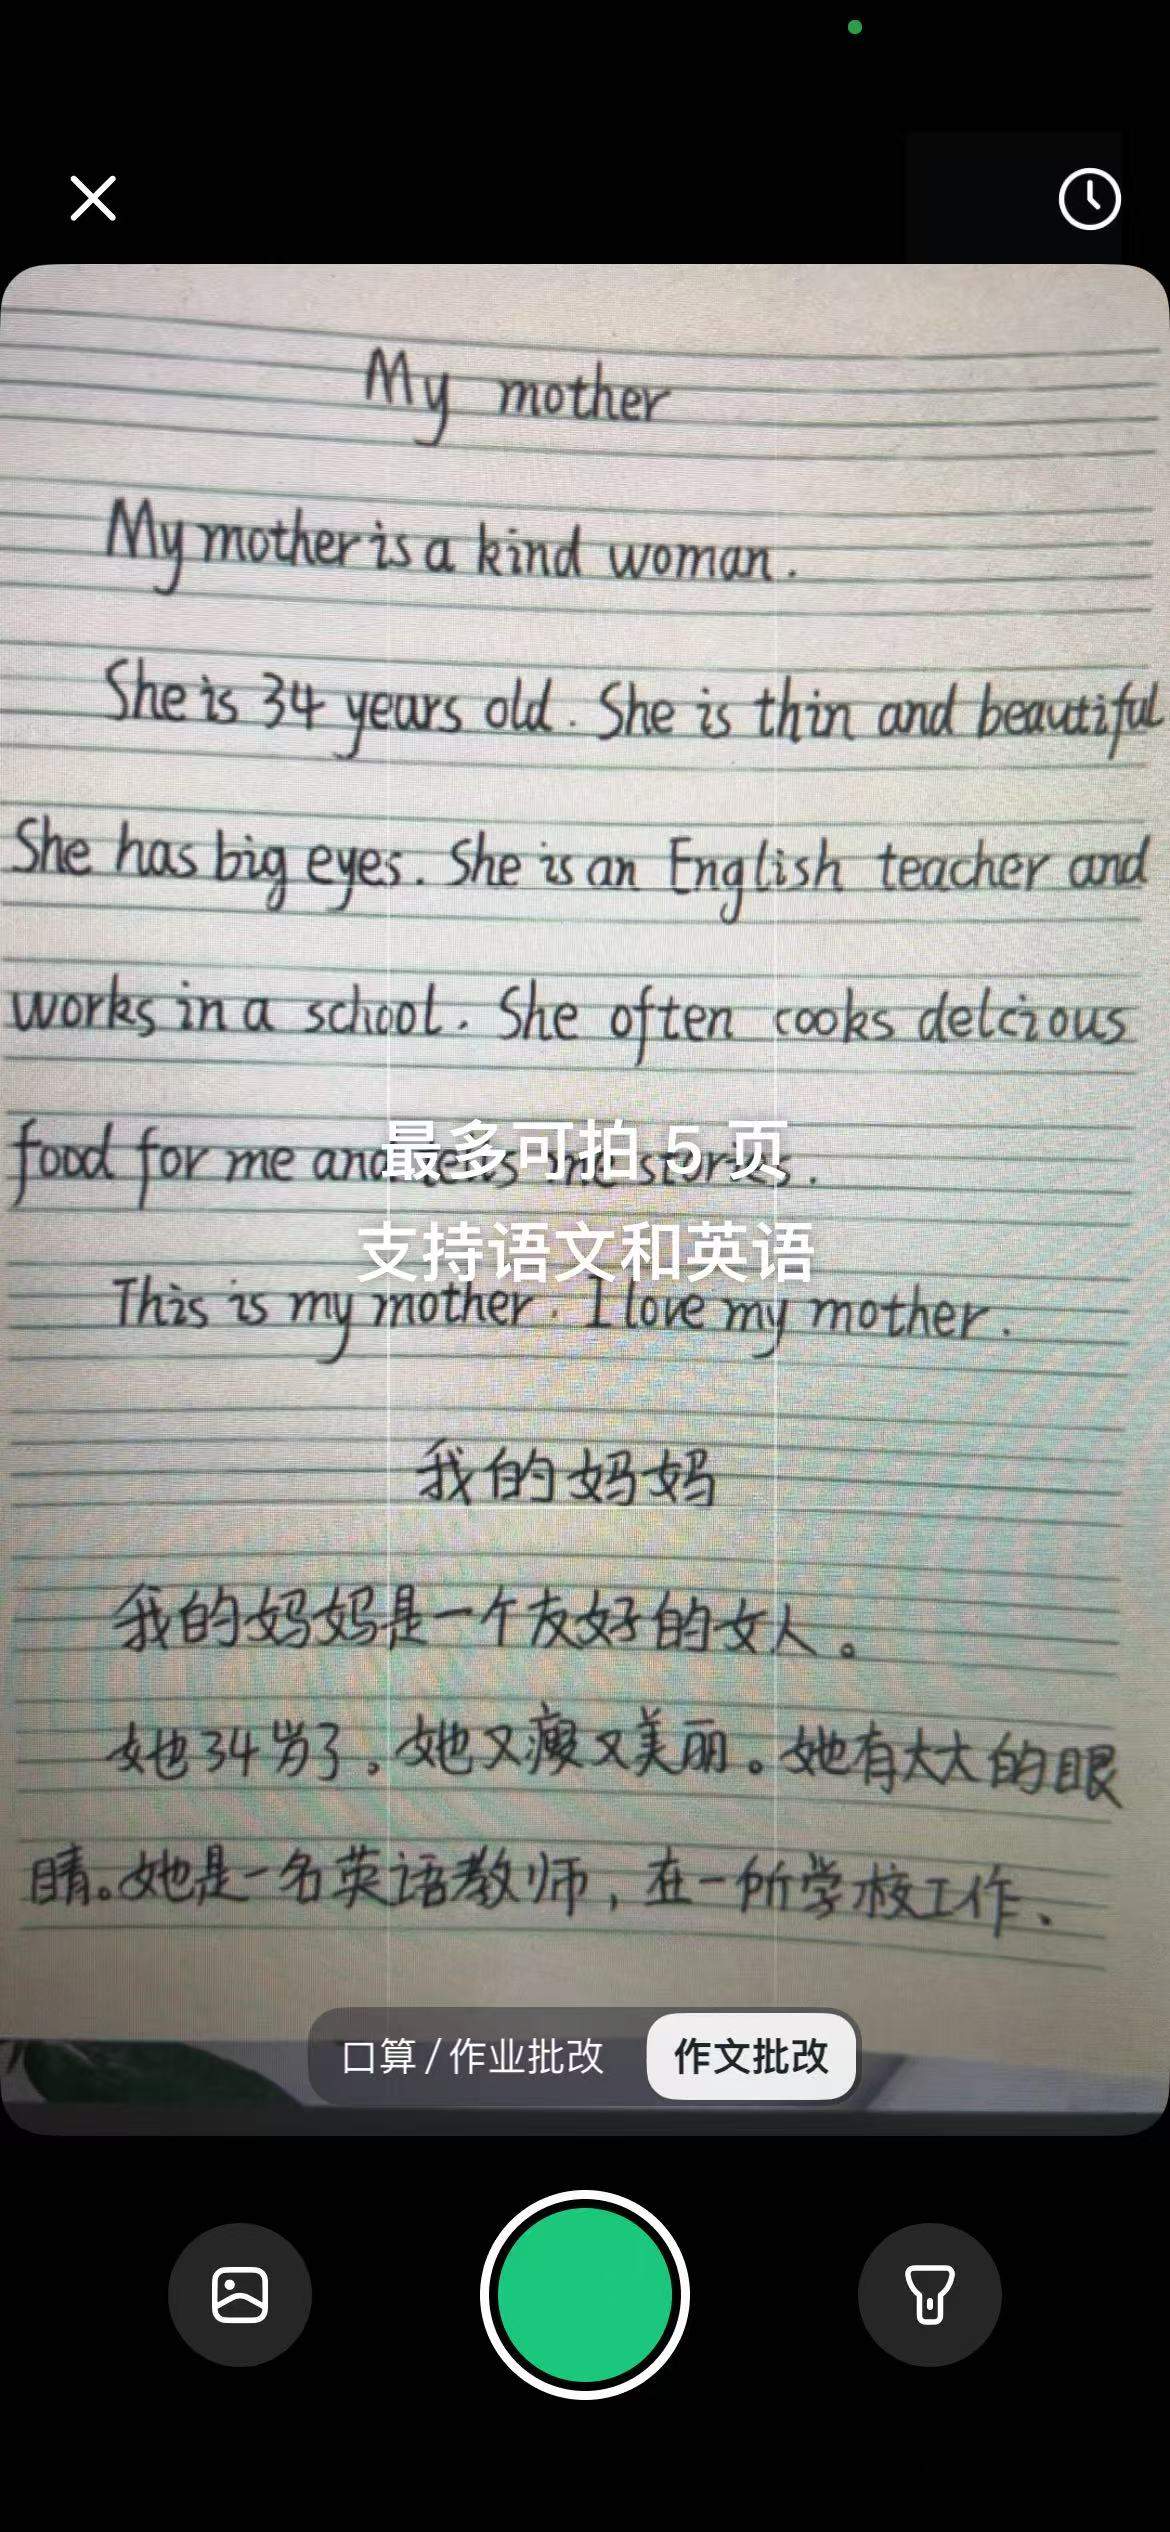 My mother
My mother is a kind woman.
She is 34 years old. She is thin and beautiful
She has big eyes. She is an English teacher and
works in a school. She often cooks delcious
food for me and
最多可拍 5 页
支持语文和英语
This is my mother. I love my mother.
我的妈妈
我的妈妈是一个友好的女人。
她34岁了。她又瘦又美丽。她有大大的眼
睛。她是一名英语教师,在一所学校工作、
口算 / 作业批改
作文批改